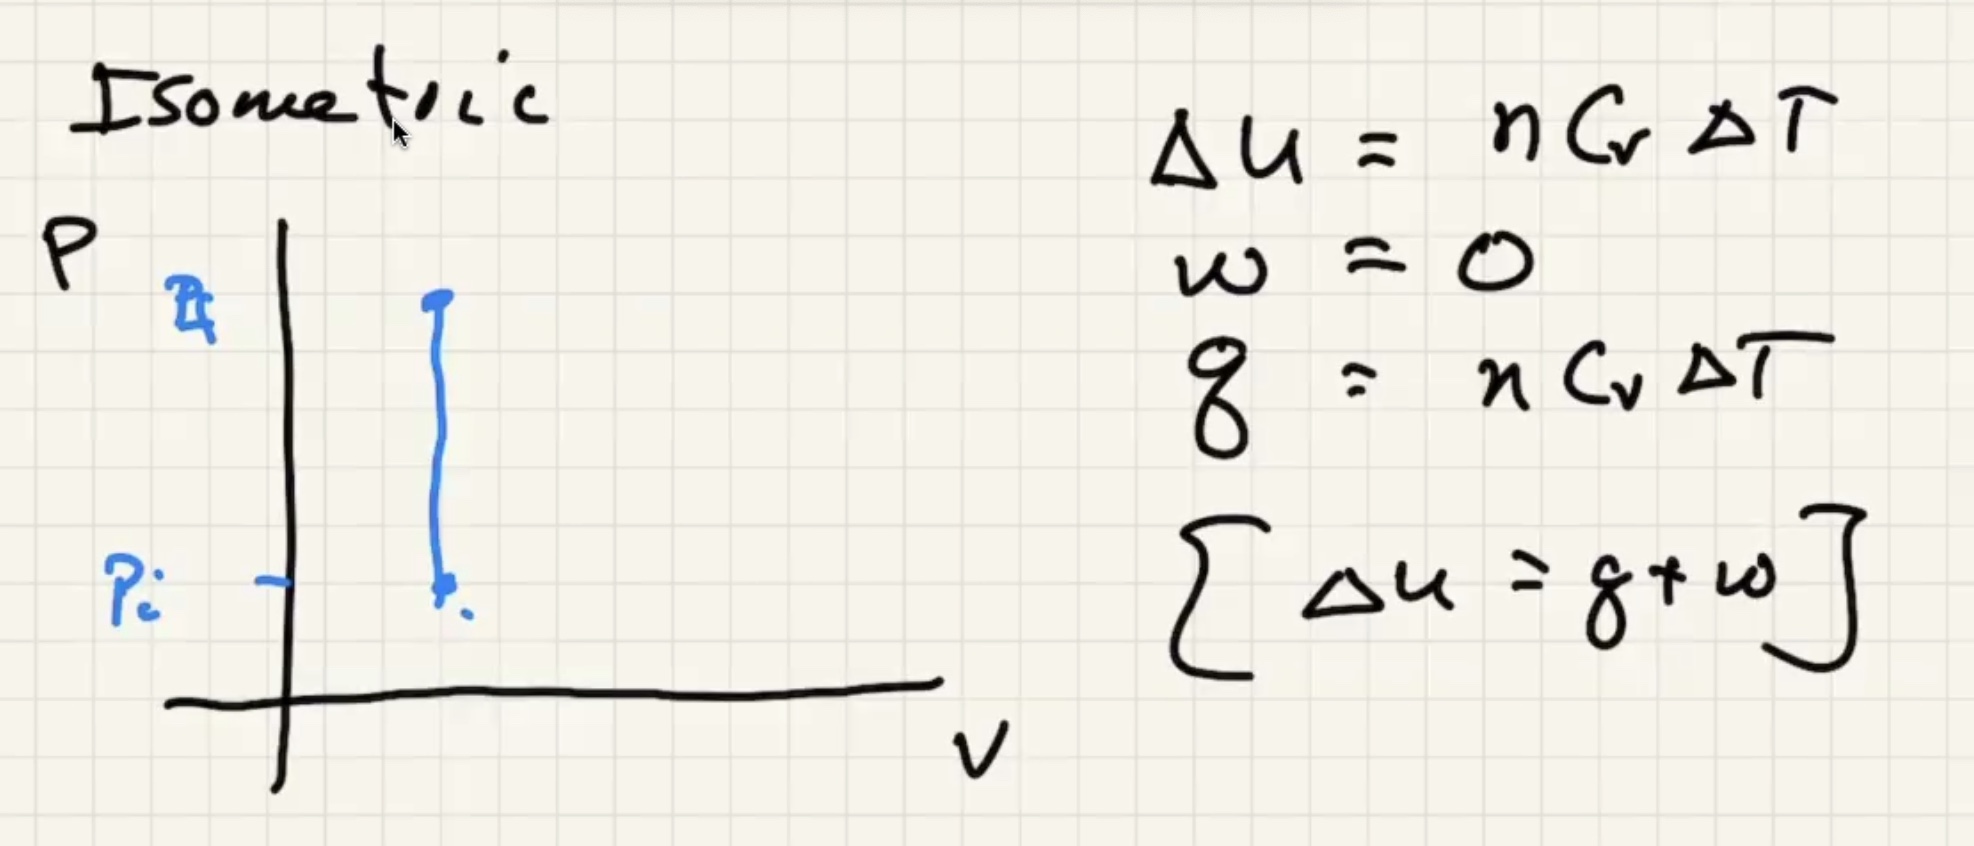 Isometric
P
Pi
V
ΔU = n Cv ΔT
w = 0
q = n Cv ΔT
[ΔU = q + w]